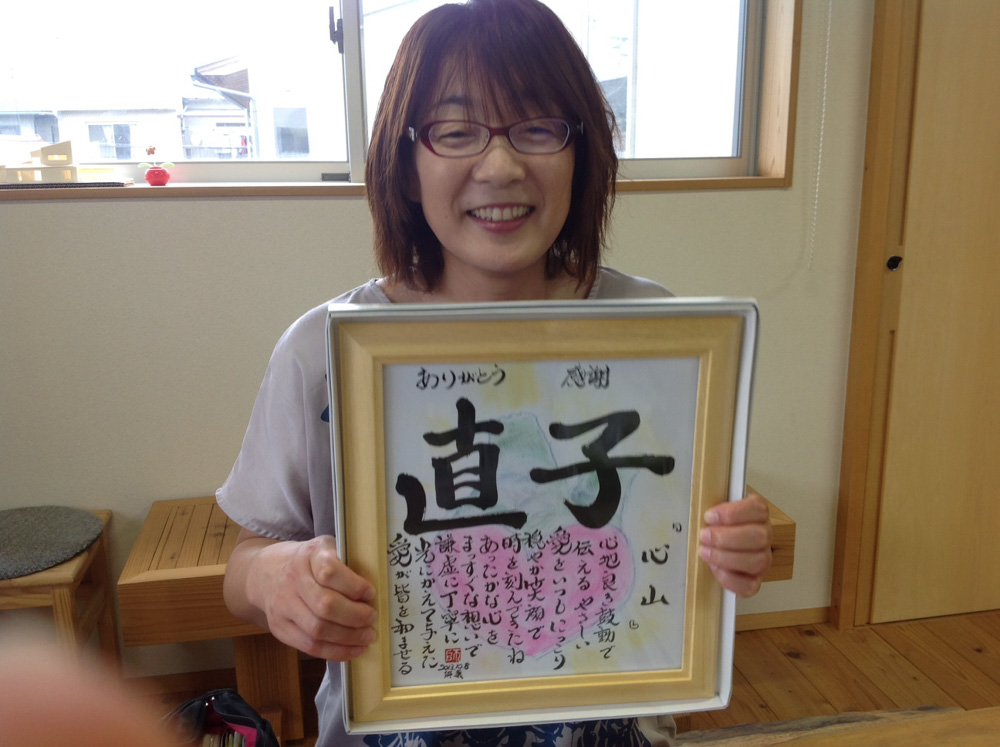 ありがとう 感謝
直子
『心山』
心地良い鼓動で
伝える やさしい
愛をいつもにっこり
穏やか笑顔で
時を刻んできたね
あったかな心を
まっすぐな想いで
謙虚に丁寧に
光にかえて与えた
愛が皆を和ませる